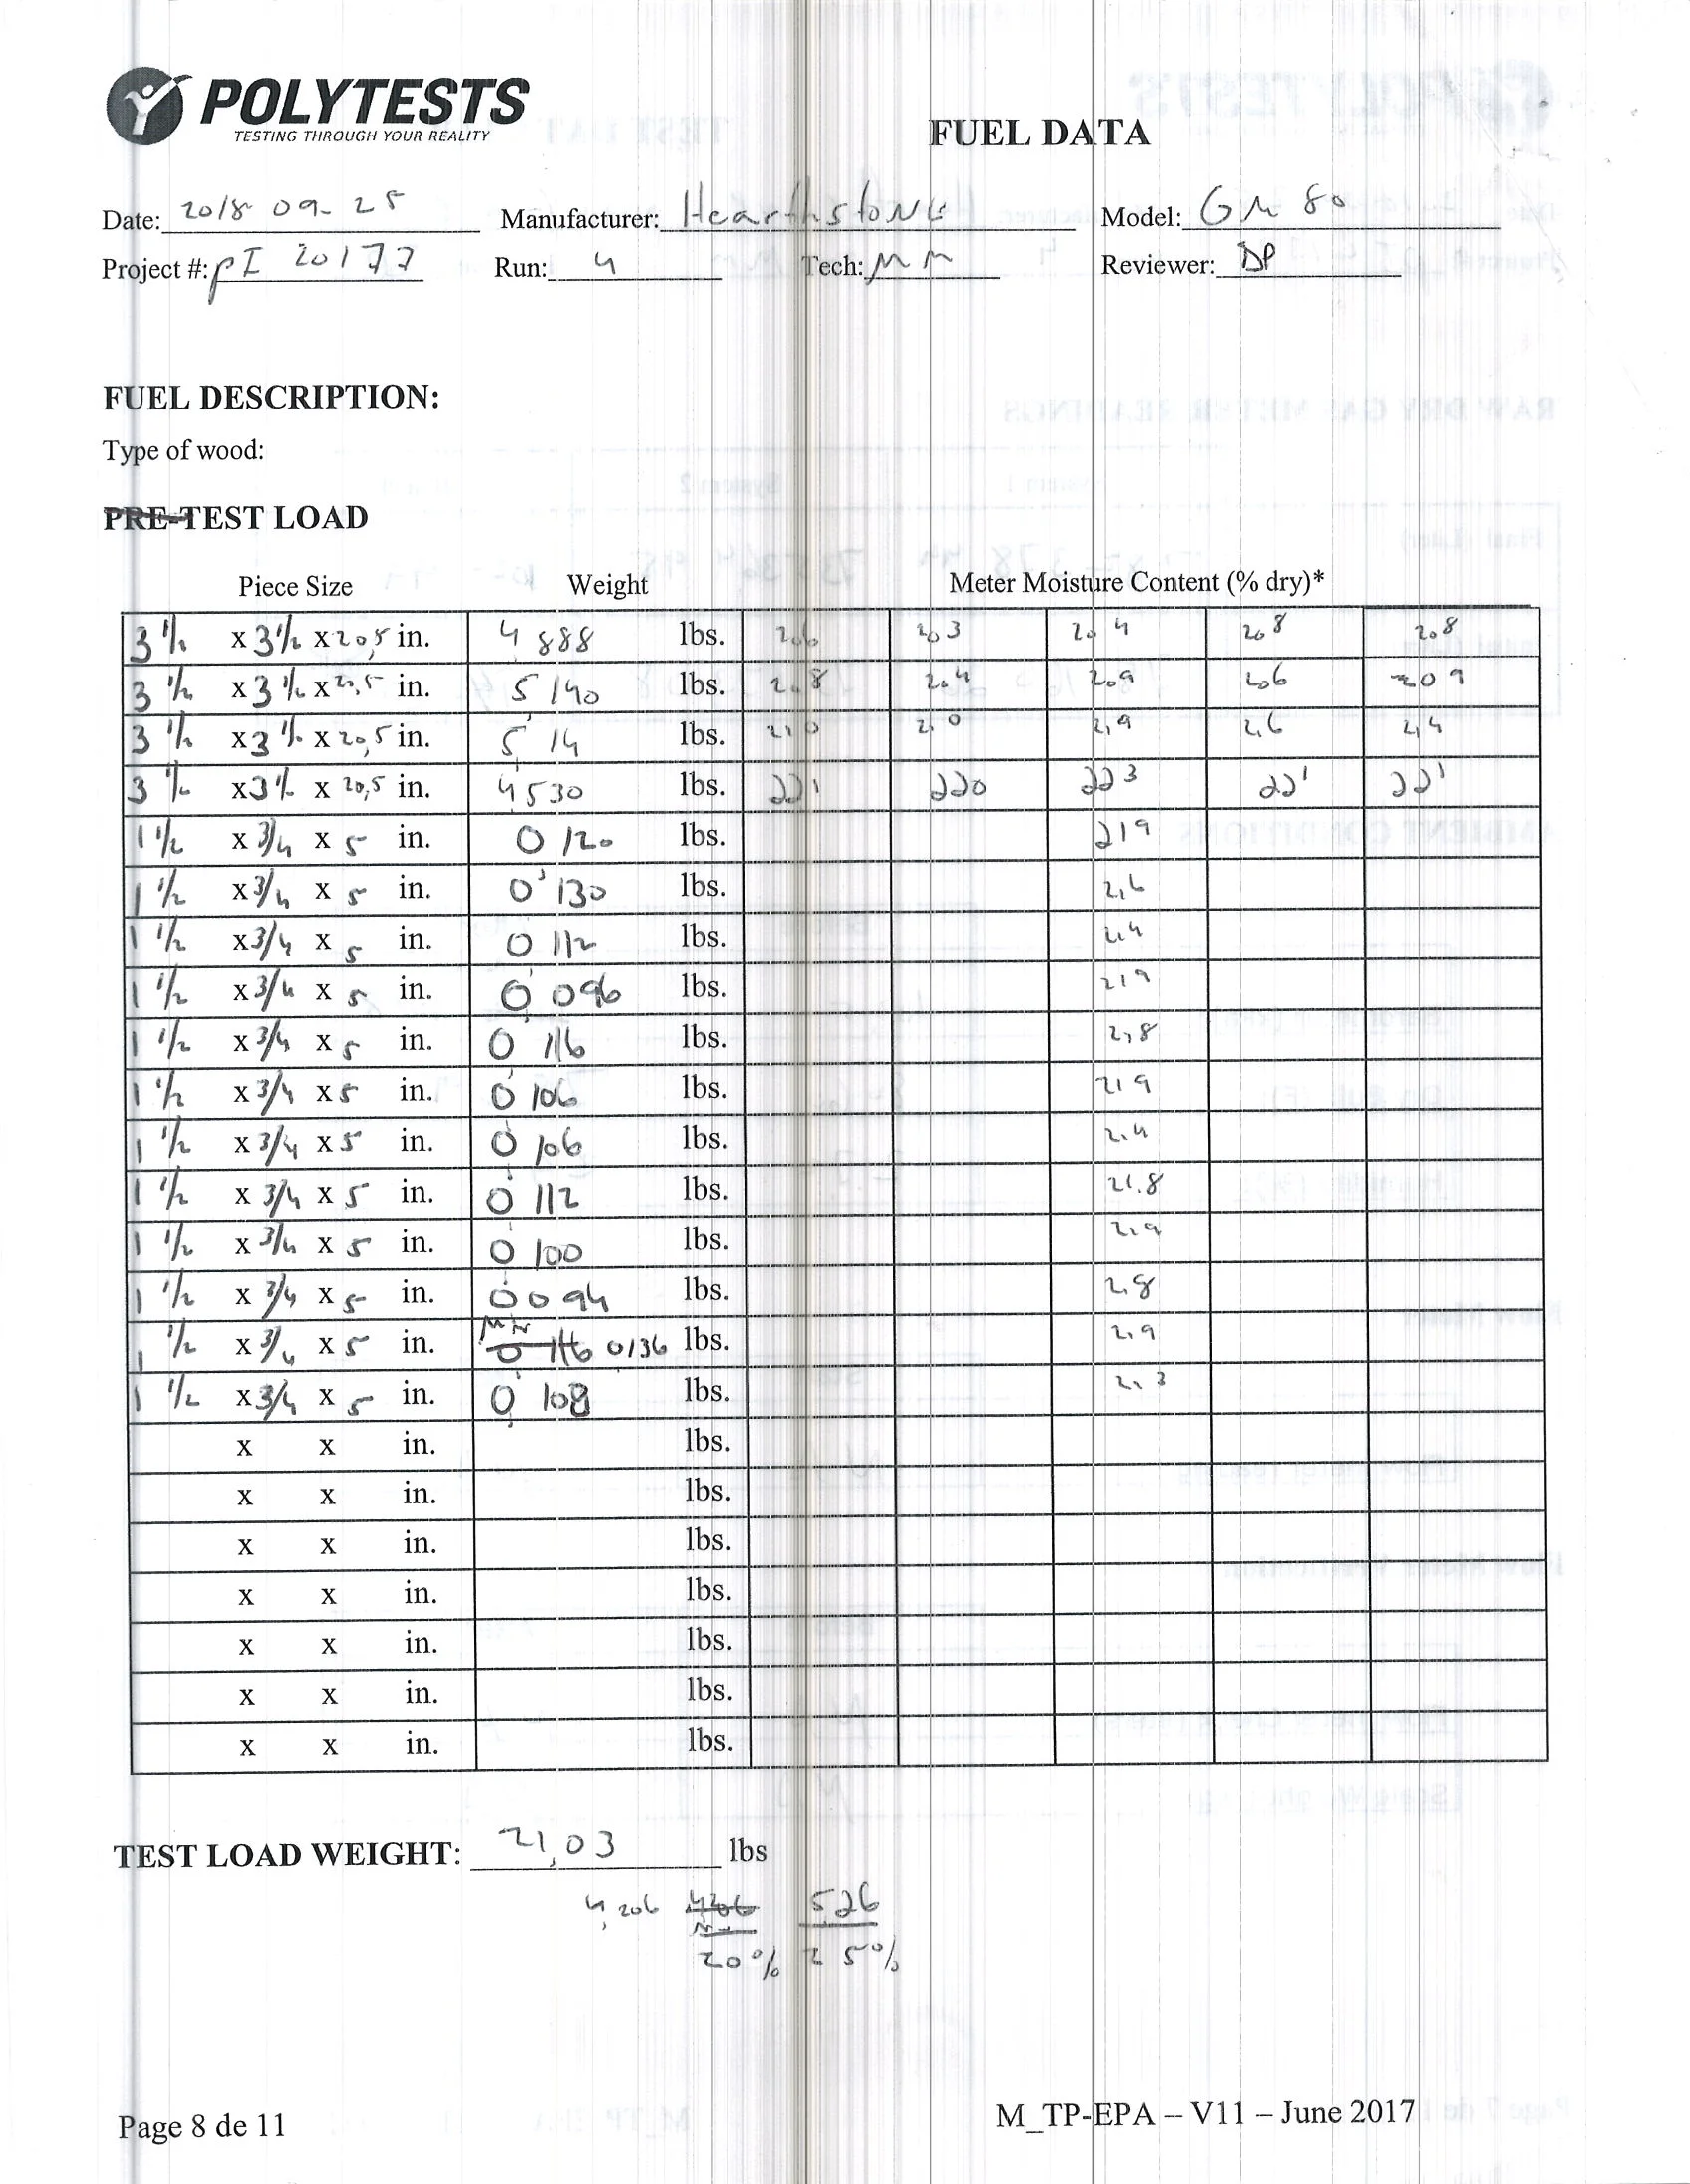 POLYTESTS
TESTING THROUGH YOUR REALITY
FUEL DATA
Date: 2018-09-25 Manufacturer: Hearthstone Model: GM 80
Project #: PI 20177 Run: 4 Tech: MM Reviewer: DP
FUEL DESCRIPTION:
Type of wood:
PRE-TEST LOAD
Piece Size Weight Meter Moisture Content (% dry)*
3 1/2 x 3 1/2 x 20,5 in. 4,888 lbs. 20,6 20,3 20,4 20,8 20,8
3 1/2 x 3 1/2 x 20,5 in. 5,140 lbs. 20,8 20,4 20,9 20,6 20,9
3 1/2 x 3 1/2 x 20,5 in. 5,14 lbs.
3 1/2 x 3 1/2 x 20,5 in. 4,530 lbs. 22,1 22,0 22,3 22,1 22,1
1 1/2 x 3/4 x 5 in. 0,120 lbs. 21,9
1 1/2 x 3/4 x 5 in. 0,130 lbs. 21,6
1 1/2 x 3/4 x 5 in. 0,112 lbs. 21,4
1 1/2 x 3/4 x 5 in. 0,096 lbs. 21,9
1 1/2 x 3/4 x 5 in. 0,116 lbs. 21,8
1 1/2 x 3/4 x 5 in. 0,106 lbs. 21,9
1 1/2 x 3/4 x 5 in. 0,106 lbs. 21,4
1 1/2 x 3/4 x 5 in. 0,112 lbs. 21.8
1 1/2 x 3/4 x 5 in. 0,100 lbs. 21,9
1 1/2 x 3/4 x 5 in. 0,094 lbs. 21,8
1 1/2 x 3/4 x 5 in. MM 0,116 0,136 lbs. 21,9
1 1/2 x 3/4 x 5 in. 0,108 lbs. 21,3
x x in. lbs.
x x in. lbs.
x x in. lbs.
x x in. lbs.
x x in. lbs.
x x in. lbs.
x x in. lbs.
TEST LOAD WEIGHT: 21,03 lbs
4,206 5,26
20% 25%
Page 8 de 11 M_TP-EPA – V11 – June 2017